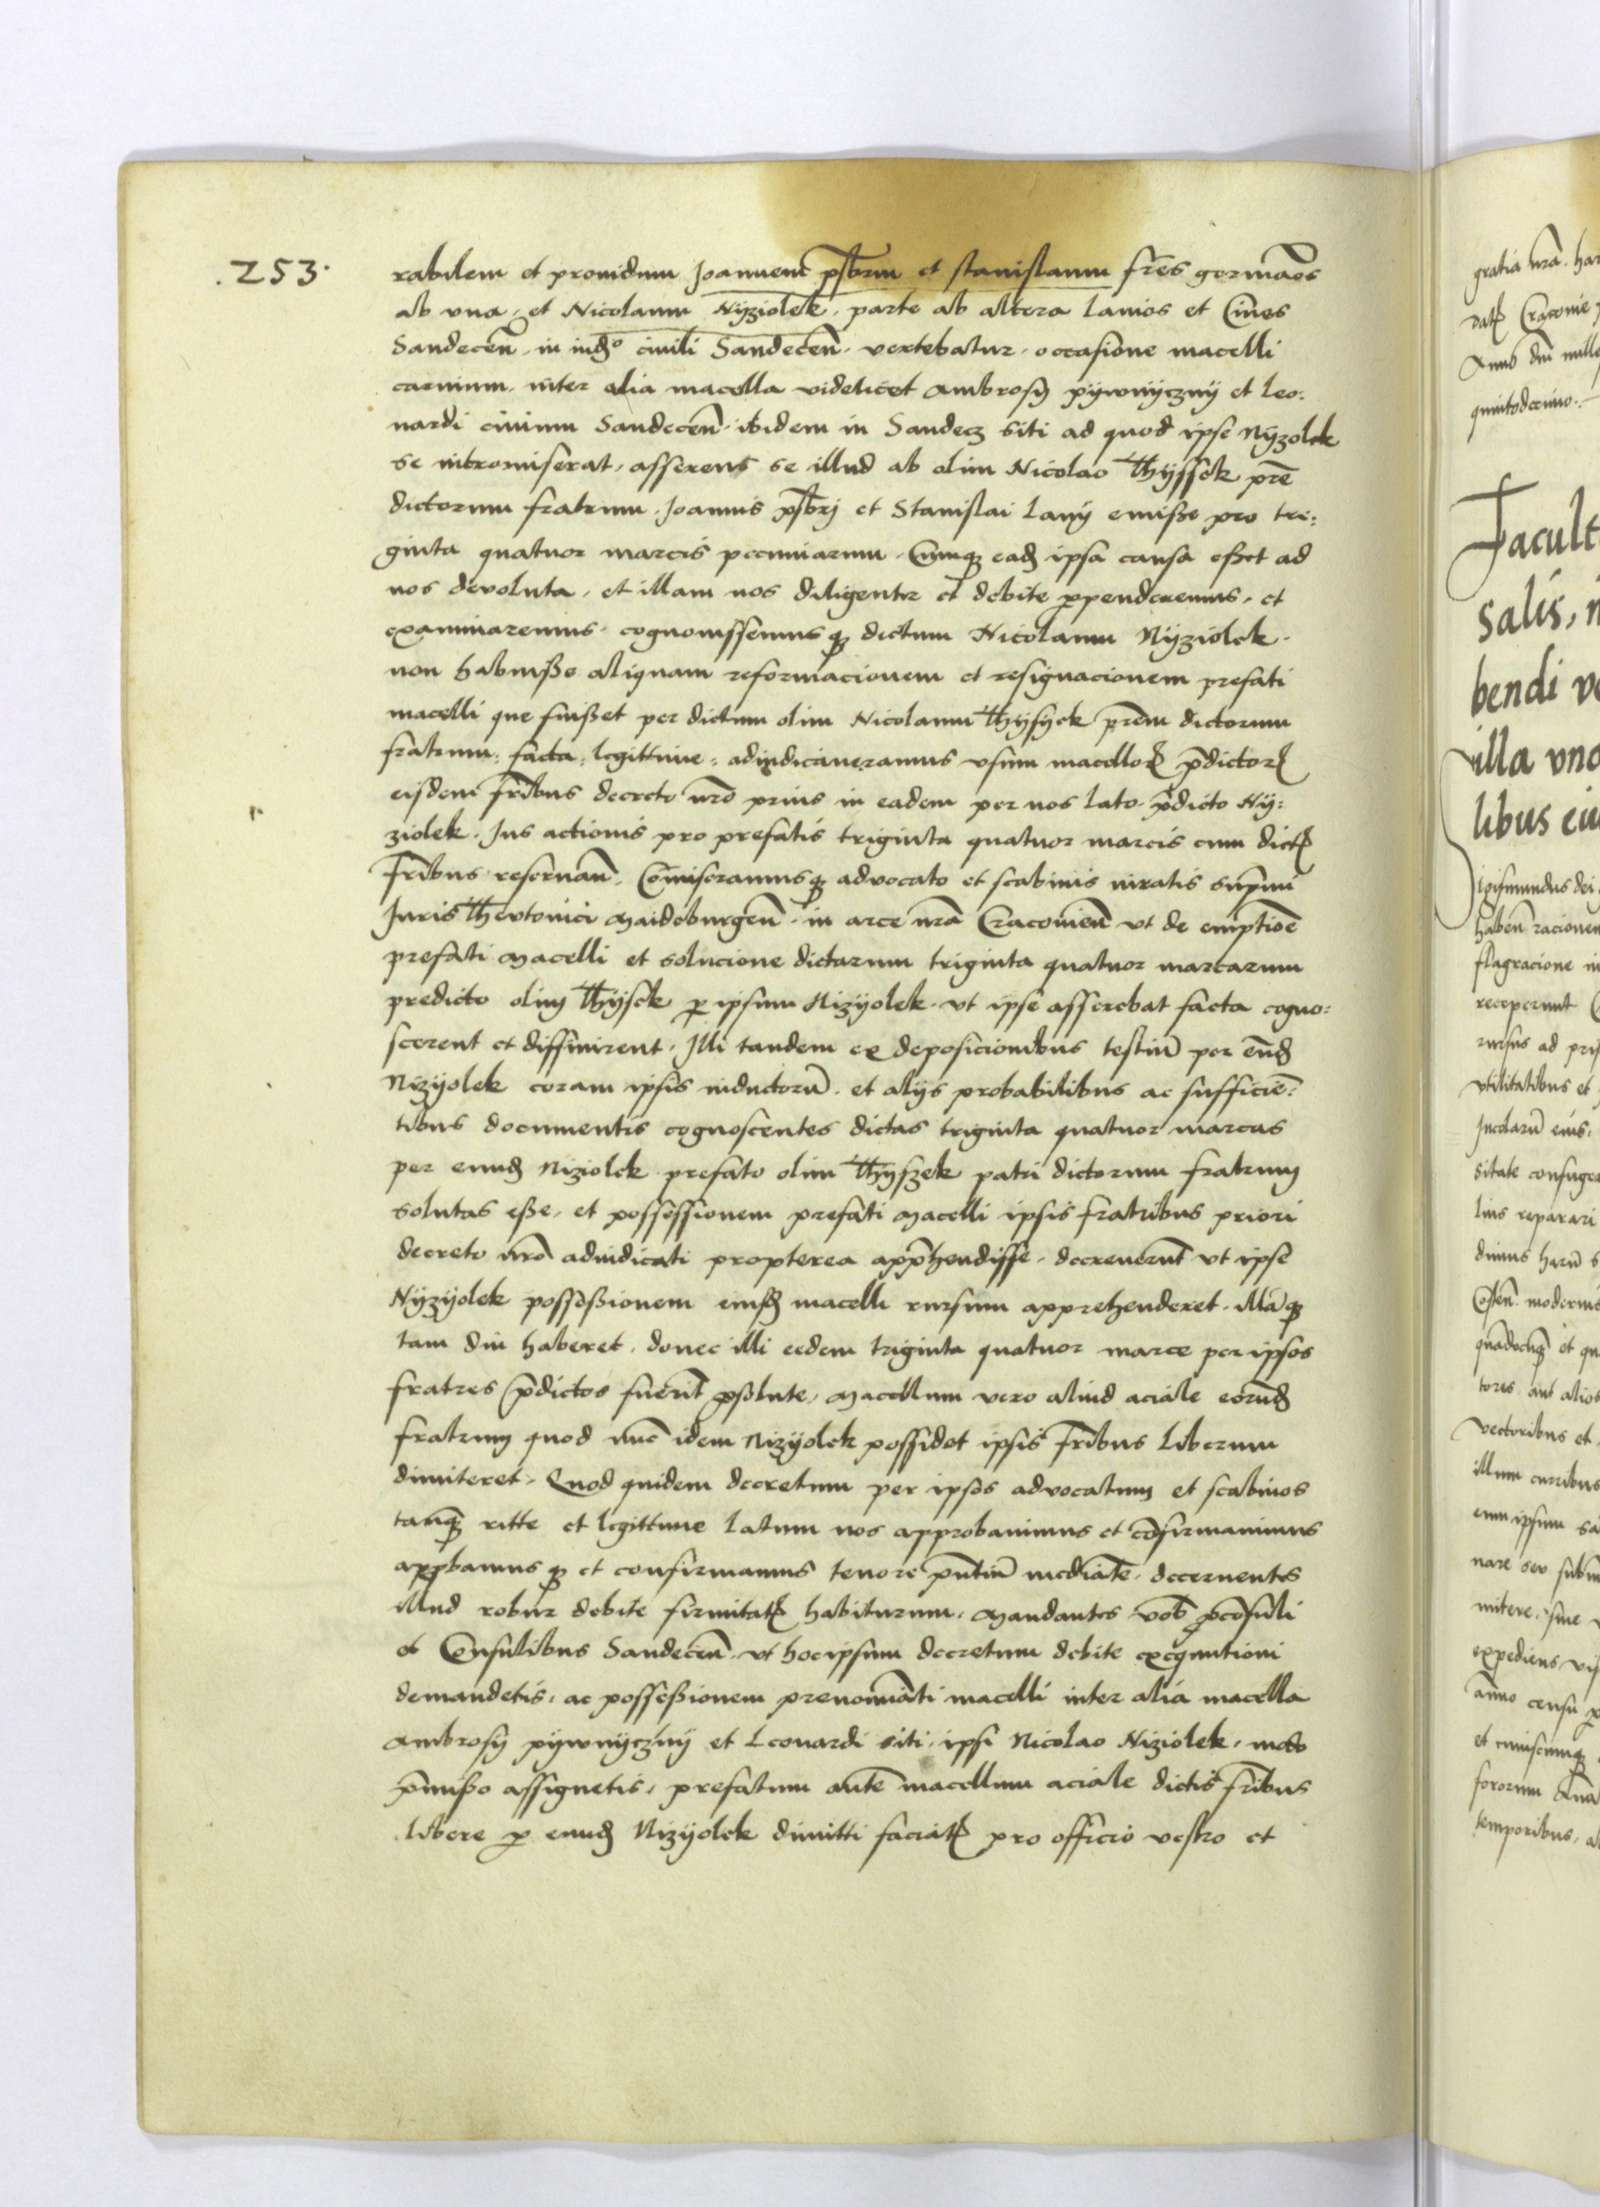 .253.
rabilem et prouidum Joannem p̅sbr̅m et stanislaum fr̅es germa̅os
ab vna, et Nicolaum Nyziolek, parte ab altera lanios et Ciues
Sandecen̅. in iudo ciuili Sandecen̅. vertebatur. occasione macelli
carnium. inter alia macella videlicet Ambrosij pywnyczny et leo:
nardi ciuium Sandecen̅. ibidem in Sandecz siti ad quod ipse Nyzolek
se intromiserat, asserens se illud ab olim Nicolao Thyssek pr̅e
dictorum fratrum. Joannis p̅sbrj et Stanislai lanij emisse pro tri:
ginta quatuor marcis pecuniarum. Cumqȝ ead̅ ipsa causa esset ad
nos devoluta, et illam nos diligenter et debite p̱penderemus, et
examinaremus. cognouissemusqȝ dictum Nicolaum Nyziolek.
non habuisse aliquam reformacionem et resignacionem prefati
macelli que fuisset per dictum olim Nicolaum Thysyek pr̅em dictorum
fratrum: facta: legittime: adiudicaueramus vsum macelloꝝ p̅dictoꝝ
eisdem fr̅ibus decreto nr̅o prius in eadem per nos lato. p̅dicto Ny:
ziolek. Jus actionis pro prefatis triginta quatuor marcis cum dictꝭ
fr̅ibus reseruan̅. Com̅iseramusqȝ advocato et scabinis iuratis supmi
Juris Thevtonici Maideburgen̅. in arce nr̅a Cracouien̅ vt de emptio̅e
prefati macelli et solucione dictarum triginta quatuor marcarum
predicto olim Thysek p̱ ipsum Nizyolek. vt ipse asserebat facta cogno:
scerent et diffinirent. Illi tandem ex deposicionibus testiu̅ per eund̅
Nizyolek coram ipsis inductoru̅. et alijs probabilibus ac sufficie̅:
tibus documentis cognoscentes dictas triginta quatuor marcas
per eund̅ Niziolek prefato olim Thyszek patri dictorum fratrum
solutas esse, et possessionem prefati macelli ipsis fratribus priori
decreto nr̅o adiudicati propterea app̅hendisse. decreuerunt vt ipse
Nyzyolek possessionem eiusd̅ macelli rursum apprehenderet. Illa̅qȝ
tam diu haberet. donec illi eedem triginta quatuor marce per ipsos
fratres p̅dictos fuerint p̱solute, macellum vero aliud aciale eorund̅
fratrum quod nu̅c idem Nizyolek possidet ipsis fr̅ibus liberum
dimiteret. Quod quidem decretum per ipsos advocatum et scabinos
tanqȝ ritte et legittime latum nos approbauimus et co̅firmauimus
app̱bamusqȝ et confirmamus tenore p̅ntiu̅ mediante. decernentes
illud robur debite firmitatꝭ habiturum, mandantes vob̅ p̱co̅suli
et Consulibus Sandecen̅. vt hoc ipsum decretum debite exequutioni
demandetis, ac possessionem prenomina̅ti macelli inter alia macella
Ambrosij pywnyczny et Leonardi siti, ipsi Nicolao Niziolek, modo
p̅misso assignetis, prefatum aute̅ macellum aciale dictis fr̅ibus
libere p̱ eund̅ Nizyolek dimitti faciatꝭ pro officio vestro et
gratia nr̅a. har
datꝭ Cracouie
Anno dn̅i mille
quintodecimo.
Facult
salis,
bendi
illa vno
libus eiu
igismundus dei
haben̅ racionem
flagracione in
receperunt
rursus ad pris
vtilitatibus et
Incolaru̅ eius.
sitate confuge
lius reparari
dimus haru̅ s
et qu
tores aut alios
vectoribus et
illum curribus
cum ipsum sa
nare seu subm
mitere. sine
expediens
anno censu p̱
et cuiuscumqȝ
fororum
temporibus, al